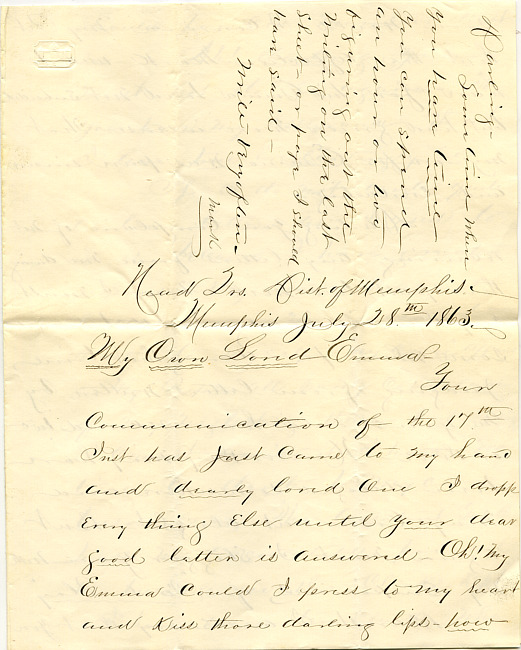 Darling
Sometime when
you han time
you can spend
an hour or two
figuring out the
writing on the last
sheet - or page I should
han said -
Write very often -
Mark
Head Qrs. Dist. of Memphis.
Memphis July 28.th 1863.
My Own Loved Emma -
Your
Communication of the 17th
Inst has just came to my hand
and dearly loved One I dropp
Every thing Else until your dear
good letter is answered - Oh! My
Emma could I press to my heart
and Kiss those darling lips - how